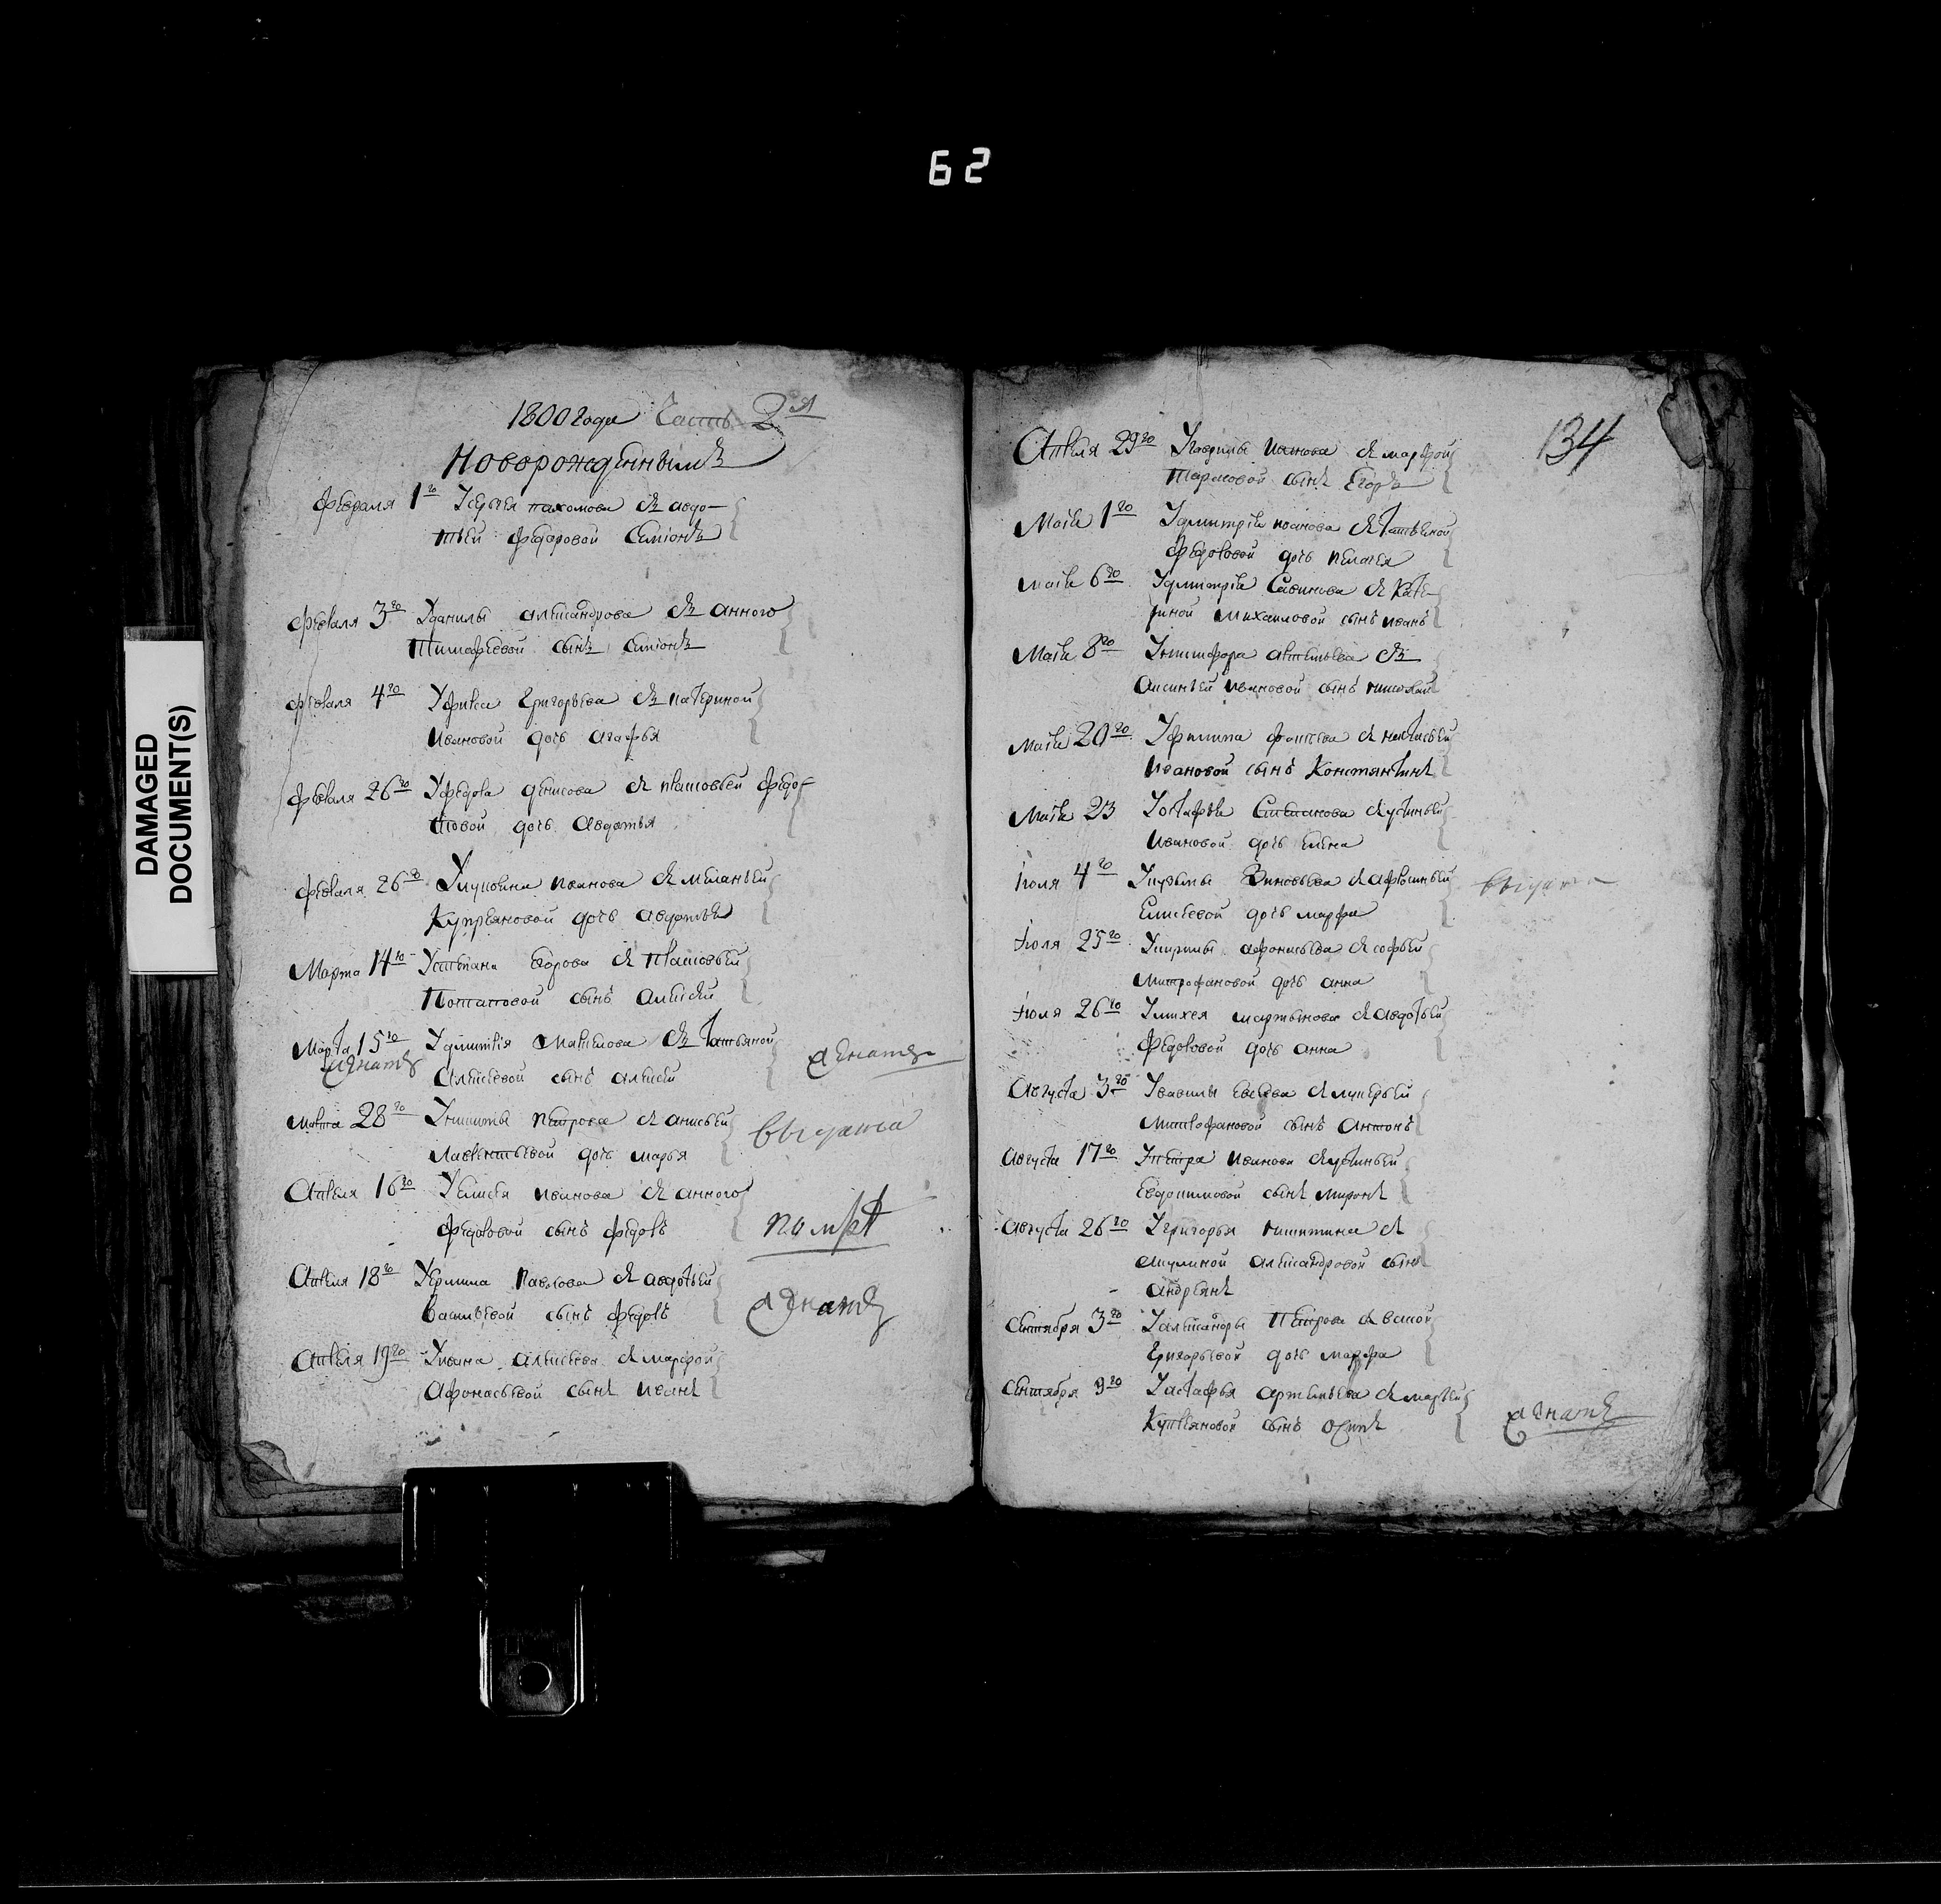 62
DAMAGED
DOCUMENT(S)
1800 года Часть 2я
Новорожденнымъ
февраля 1го У сергея пахомова съ авдо-
тьей федаровой Симіонъ
февраля 3го У данилы александрова съ анною
Тимофеевой сынъ Симіонъ
февраля 4го Григорьева съ катериной
Ивановой дочь агафья
февраля 26го У федора денисова съ прасковьей федо-
товой дочь Авдотья
февраля 26го Иванова съ меланьей
Купреяновой дочь авдотья
Марта 14го У степана Егорова съ Прасковьей
Потаповой сынъ алексей
Марта 15го У дмитрія съ Татьяной
женатъ
Алексеевой сынъ алексей
женатъ
марта 28го У никиты петрова съ анисьей
Лаврентьевой дочь марья
выдата
Апреля 16го У елисея иванова съ анною
федоровой сынъ федоръ
помре
Апреля 18го У ермила съ авдотьей
Васильевой сынъ федоръ
женатъ
Апреля 19го У ивана алексеева съ марфой
Афонасьевой сынъ иванъ
134
Апреля 29го У гаврилы иванова съ марфой
сынъ Егоръ
Маія 1го У дмитрія иванова съ Татьяной
федоровой дочь пелагея
маія 6го У дмитрія Савинова съ Кате-
риной михаиловой сынъ иванъ
Маія 8го У никифора съ
Аксиньей ивановой сынъ николай
маія 20го У филипа съ настасьей
Ивановой сынъ Константинъ
Маія 23 У остафья Степанова съ устиньей
Ивановой дочь Елена
Июля 4го У кузьмы Зиновьева съ афросиньей
Елисеевой дочь марфа
Июля 25го афонасьева съ софьей
митрофановой дочь анна
Июля 26го У михея мартынова съ авдотьей
федоровой дочь анна
Августа 3го У вавилы Евсеева съ лукерьей
Митрофановой сынъ Антонъ
Августа 17го У петра Иванова съ устиньей
Евдокимовой сынъ миронъ
Августа 26го У григорья никитина съ
акулиной александровой сынъ
андреянъ
Сентября 3го У александры Петрова съ
Григорьевой дочь марфа
Сентября 9го У астафья артемьева съ марьей
Купреяновой сынъ осипъ
женатъ